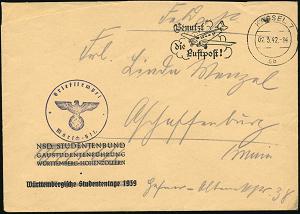 Benutzt
die
Luftpost!
KASSEL
02.3.42.-14
Frl. Linda Wenzel
Aschaffenburg
Main
Briefstempel
NSD. STUDENTENBUND
GAUSTUDENTENFÜHRUNG
WÜRTTEMBERG-HOHENZOLLERN
Württembergische Studententage 1939
38